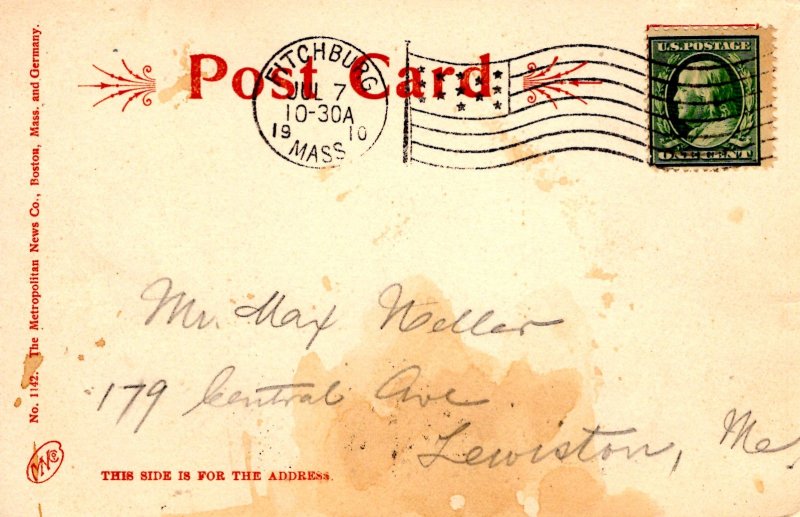 Post Card
FITCHBURG
JUL 7
10-30A
19 10
MASS
U.S. POSTAGE
ONE CENT
Mr. Max
179 Central Ave
Lewiston, Me,
No. 1142. The Metropolitan News Co., Boston, Mass. and Germany.
MNCo
THIS SIDE IS FOR THE ADDRESS.